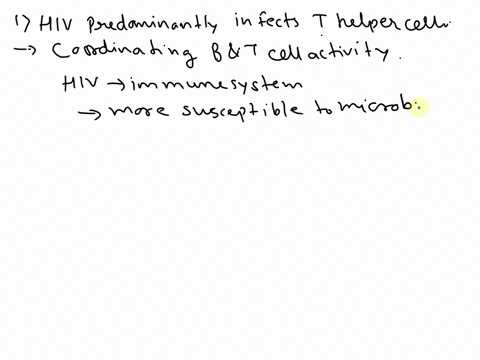 1) HIV predominantly infects T helper cell.
→ Coordinating B & T cell activity.
HIV → immune system
→ more susceptible to microb